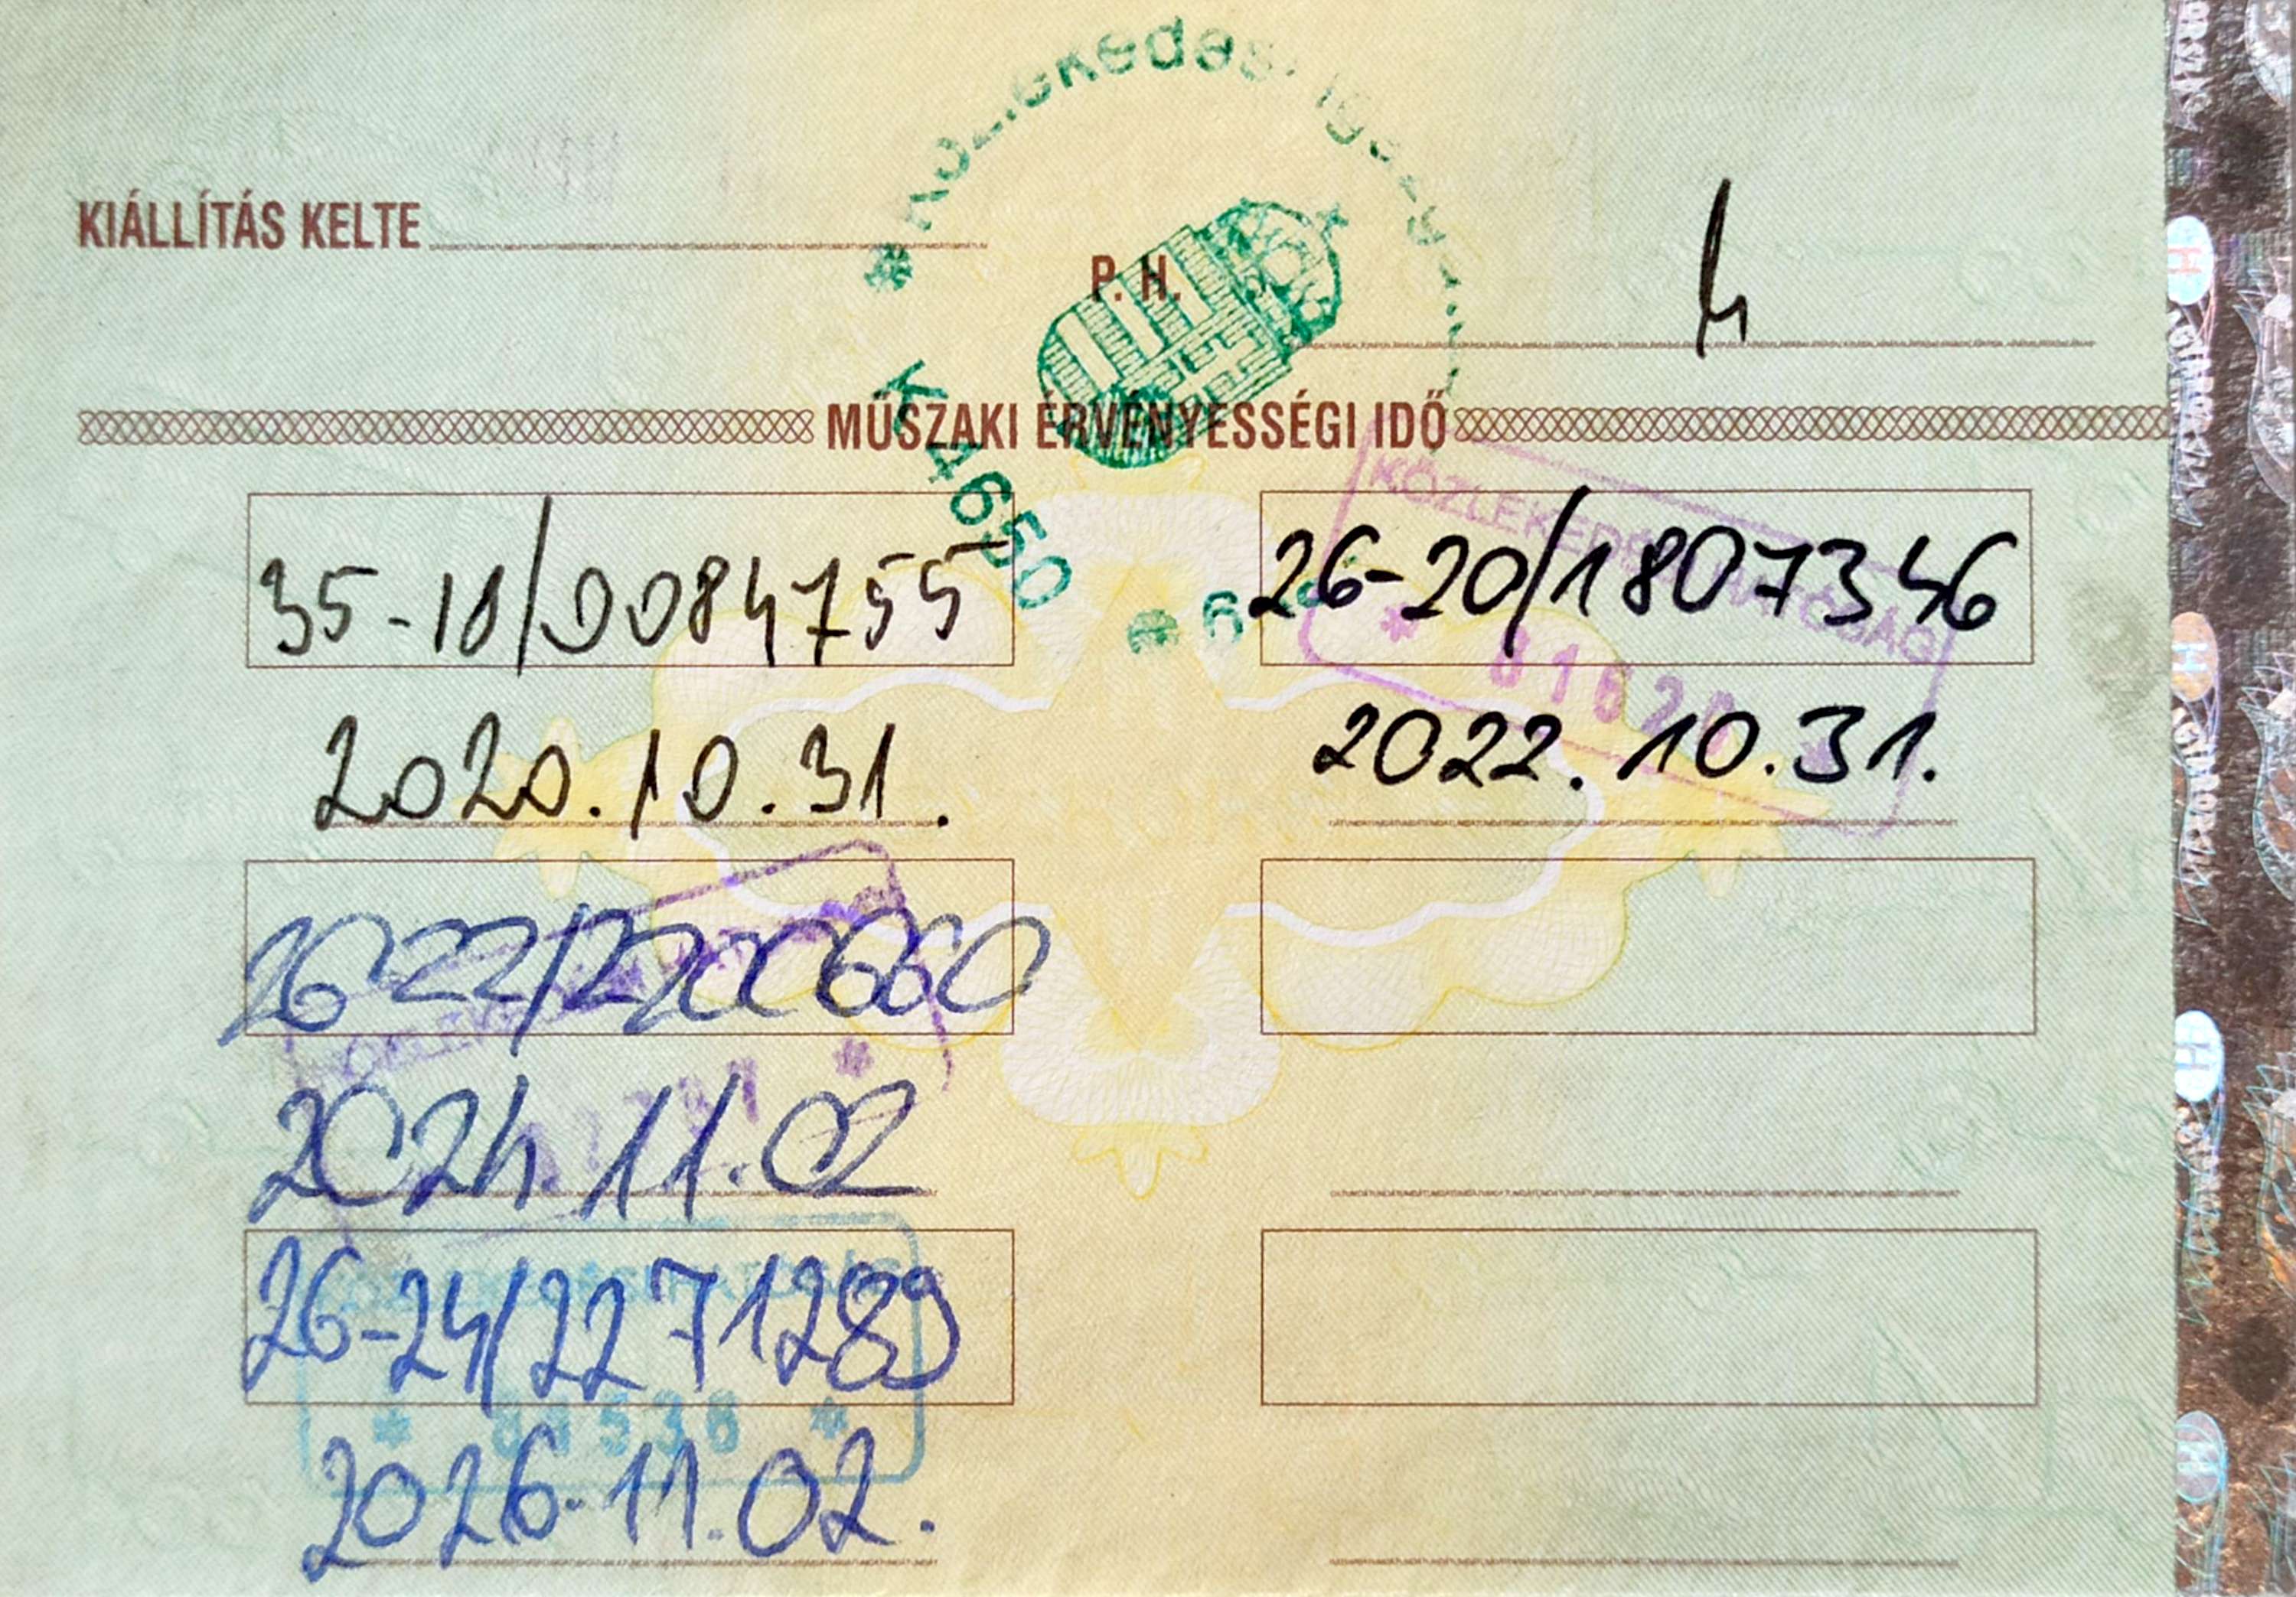 Közlekedési Igazga
KIÁLLÍTÁS KELTE
P. H.
K 4650
MŰSZAKI ÉRVÉNYESSÉGI IDŐ
KÖZLEKEDÉSI HATÓSÁG
35-18/0084755
26-20/1807346
2020.10.31.
2022.10.31.
26-22/2200660
2024.11.02
26-24/2271289
* 81536 *
2026.11.02.